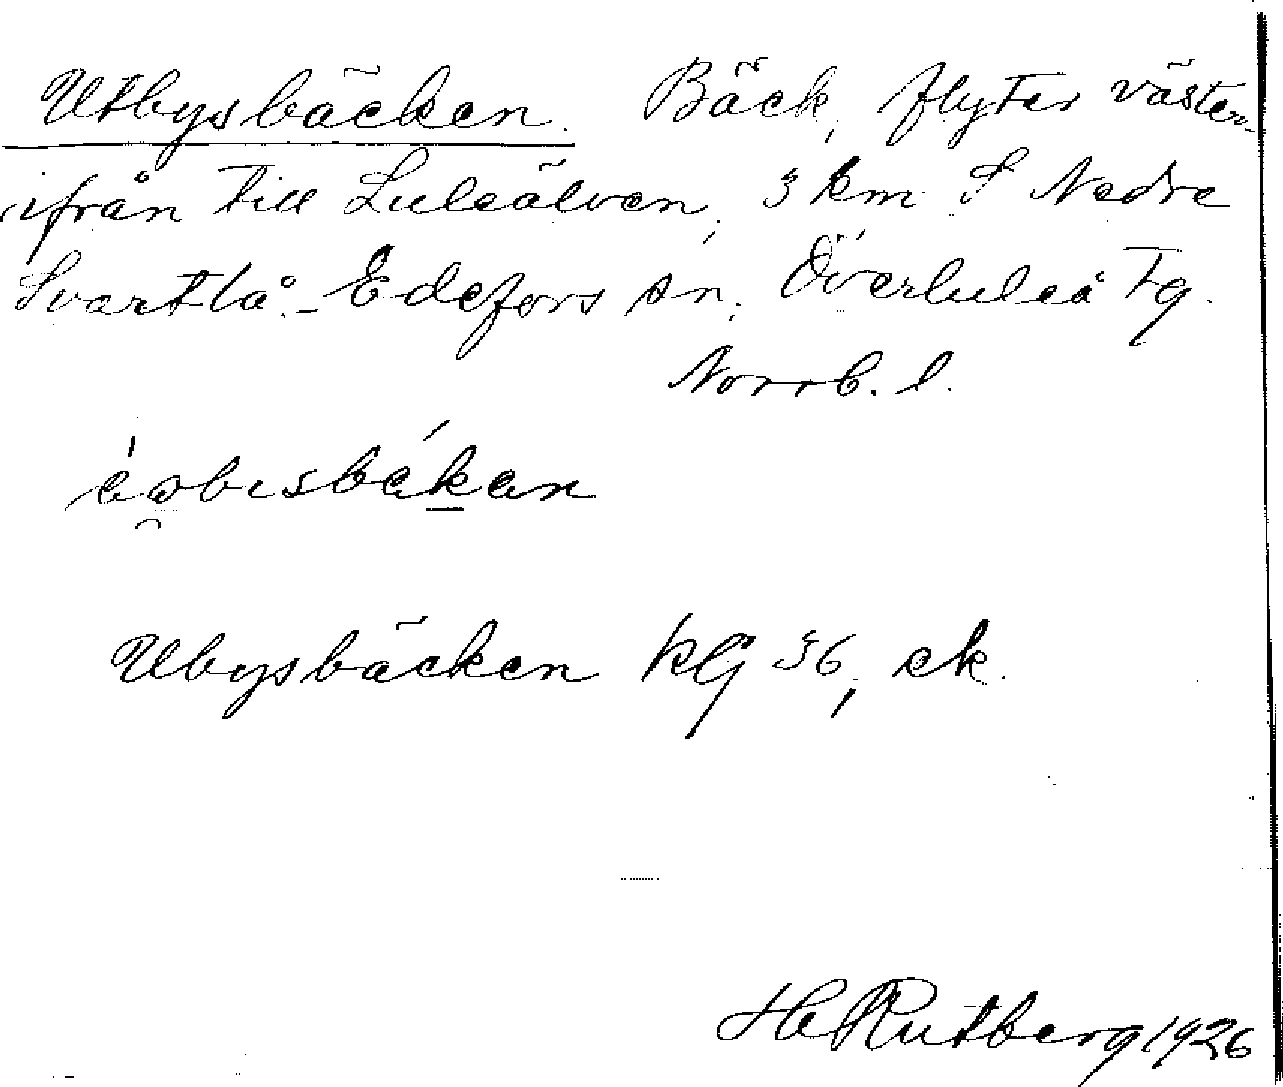 Utbysbäcken. Bäck, flyter väster-
ifrån till Luleälven, 3 km S Nedre
Svartlå. - Edefors sn. Överluleå tg.
Norrb. l.
Ubysbäcken KG 36, ek.
H Rutberg 1926